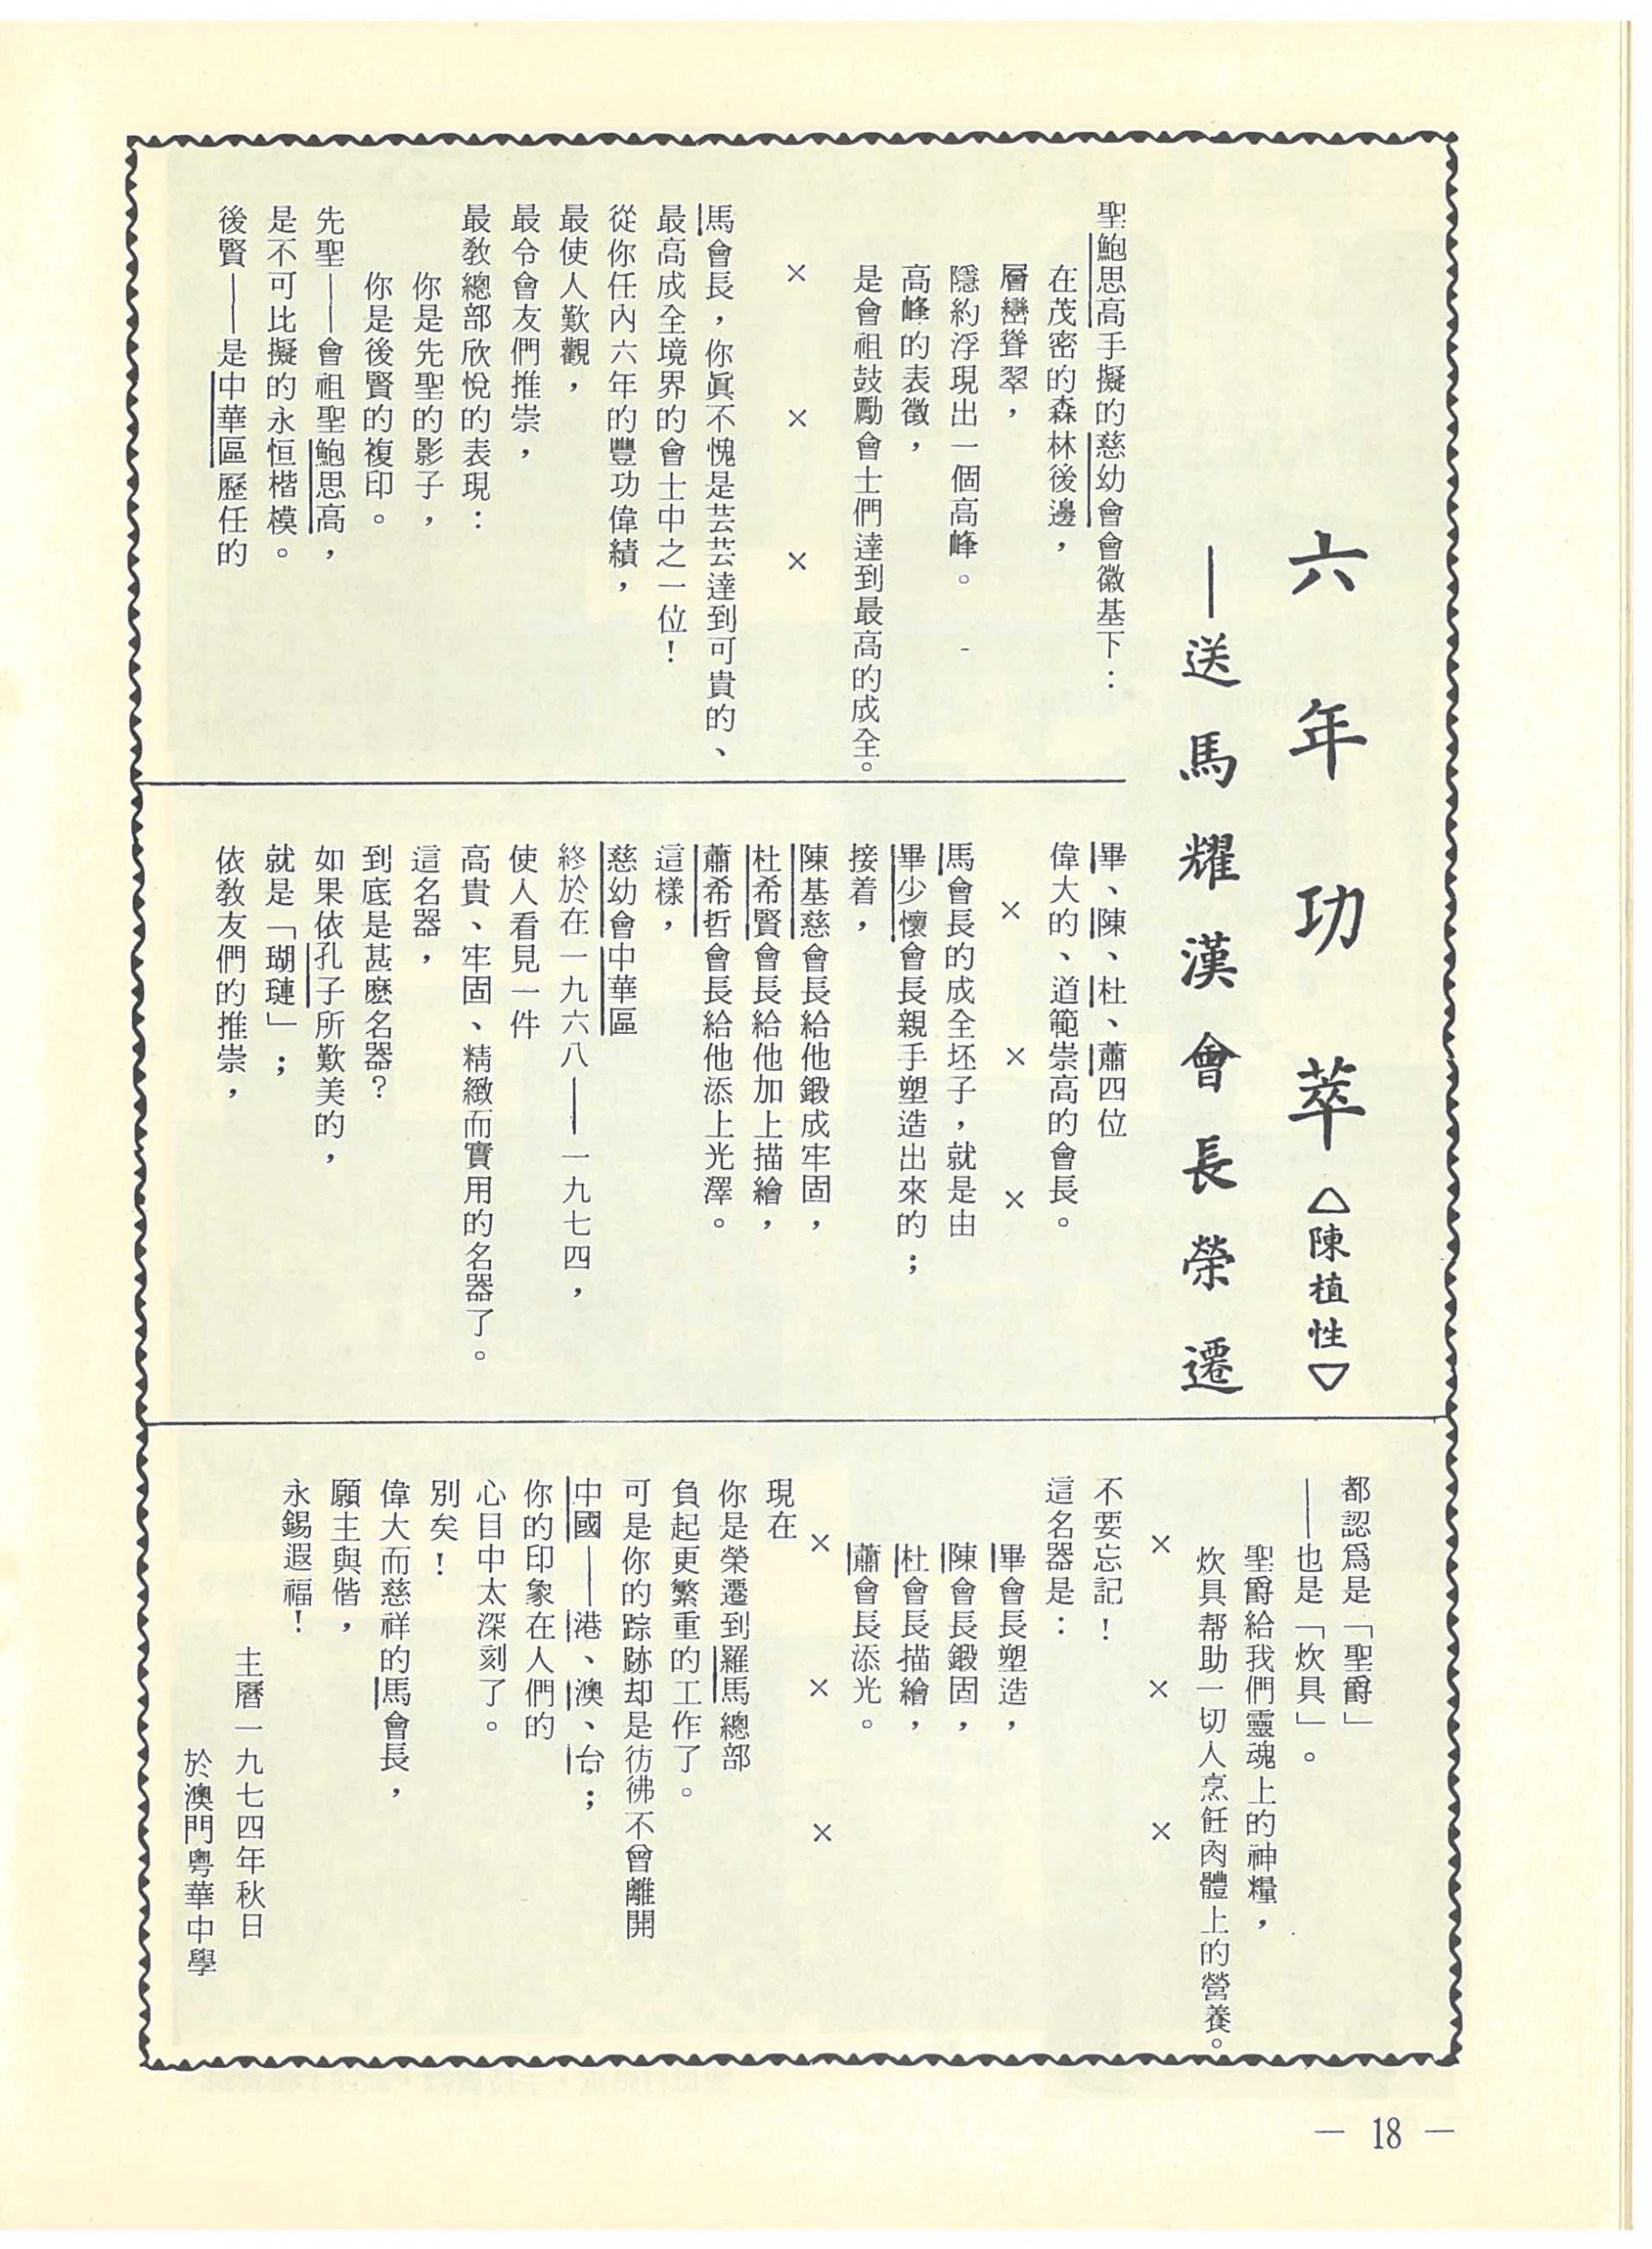 六年功萃△陳植性▽
——送馬耀漢會長榮遷
聖鮑思高手擬的慈幼會會徽基下：
在茂密的森林後邊，
層巒聳翠，
隱約浮現出一個高峰。
高峰的表徵，
是會祖鼓勵會士們達到最高的成全。
×　×　×
馬會長，你眞不愧是芸芸達到可貴的、
最高成全境界的會士中之一位！
從你任內六年的豐功偉績，
最使人歎觀，
最令會友們推崇，
最敎總部欣悅的表現：
你是先聖的影子，
你是後賢的複印。
先聖——會祖聖鮑思高，
是不可比擬的永恒楷模。
後賢——是中華區歷任的
畢、陳、杜、蕭四位
偉大的、道範崇高的會長。
×　×　×
馬會長的成全坯子，就是由
畢少懷會長親手塑造出來的；
接着，
陳基慈會長給他鍛成牢固，
杜希賢會長給他加上描繪，
蕭希哲會長給他添上光澤。
這樣，
慈幼會中華區
終於在一九六八——一九七四，
使人看見一件
高貴、牢固、精緻而實用的名器了。
這名器，
到底是甚麽名器？
如果依孔子所歎美的，
就是「瑚璉」；
依敎友們的推崇，
都認爲是「聖爵」
——也是「炊具」。
聖爵給我們靈魂上的神糧，
炊具帮助一切人烹飪肉體上的營養。
×　×　×
不要忘記！
這名器是：
畢會長塑造，
陳會長鍛固，
杜會長描繪，
蕭會長添光。
×　×　×
現在
你是榮遷到羅馬總部
負起更繁重的工作了。
可是你的踪跡却是彷彿不曾離開
中國——港、澳、台；
你的印象在人們的
心目中太深刻了。
別矣！
偉大而慈祥的馬會長，
願主與偕，
永錫遐福！
主曆一九七四年秋日
於澳門粵華中學
— 18 —